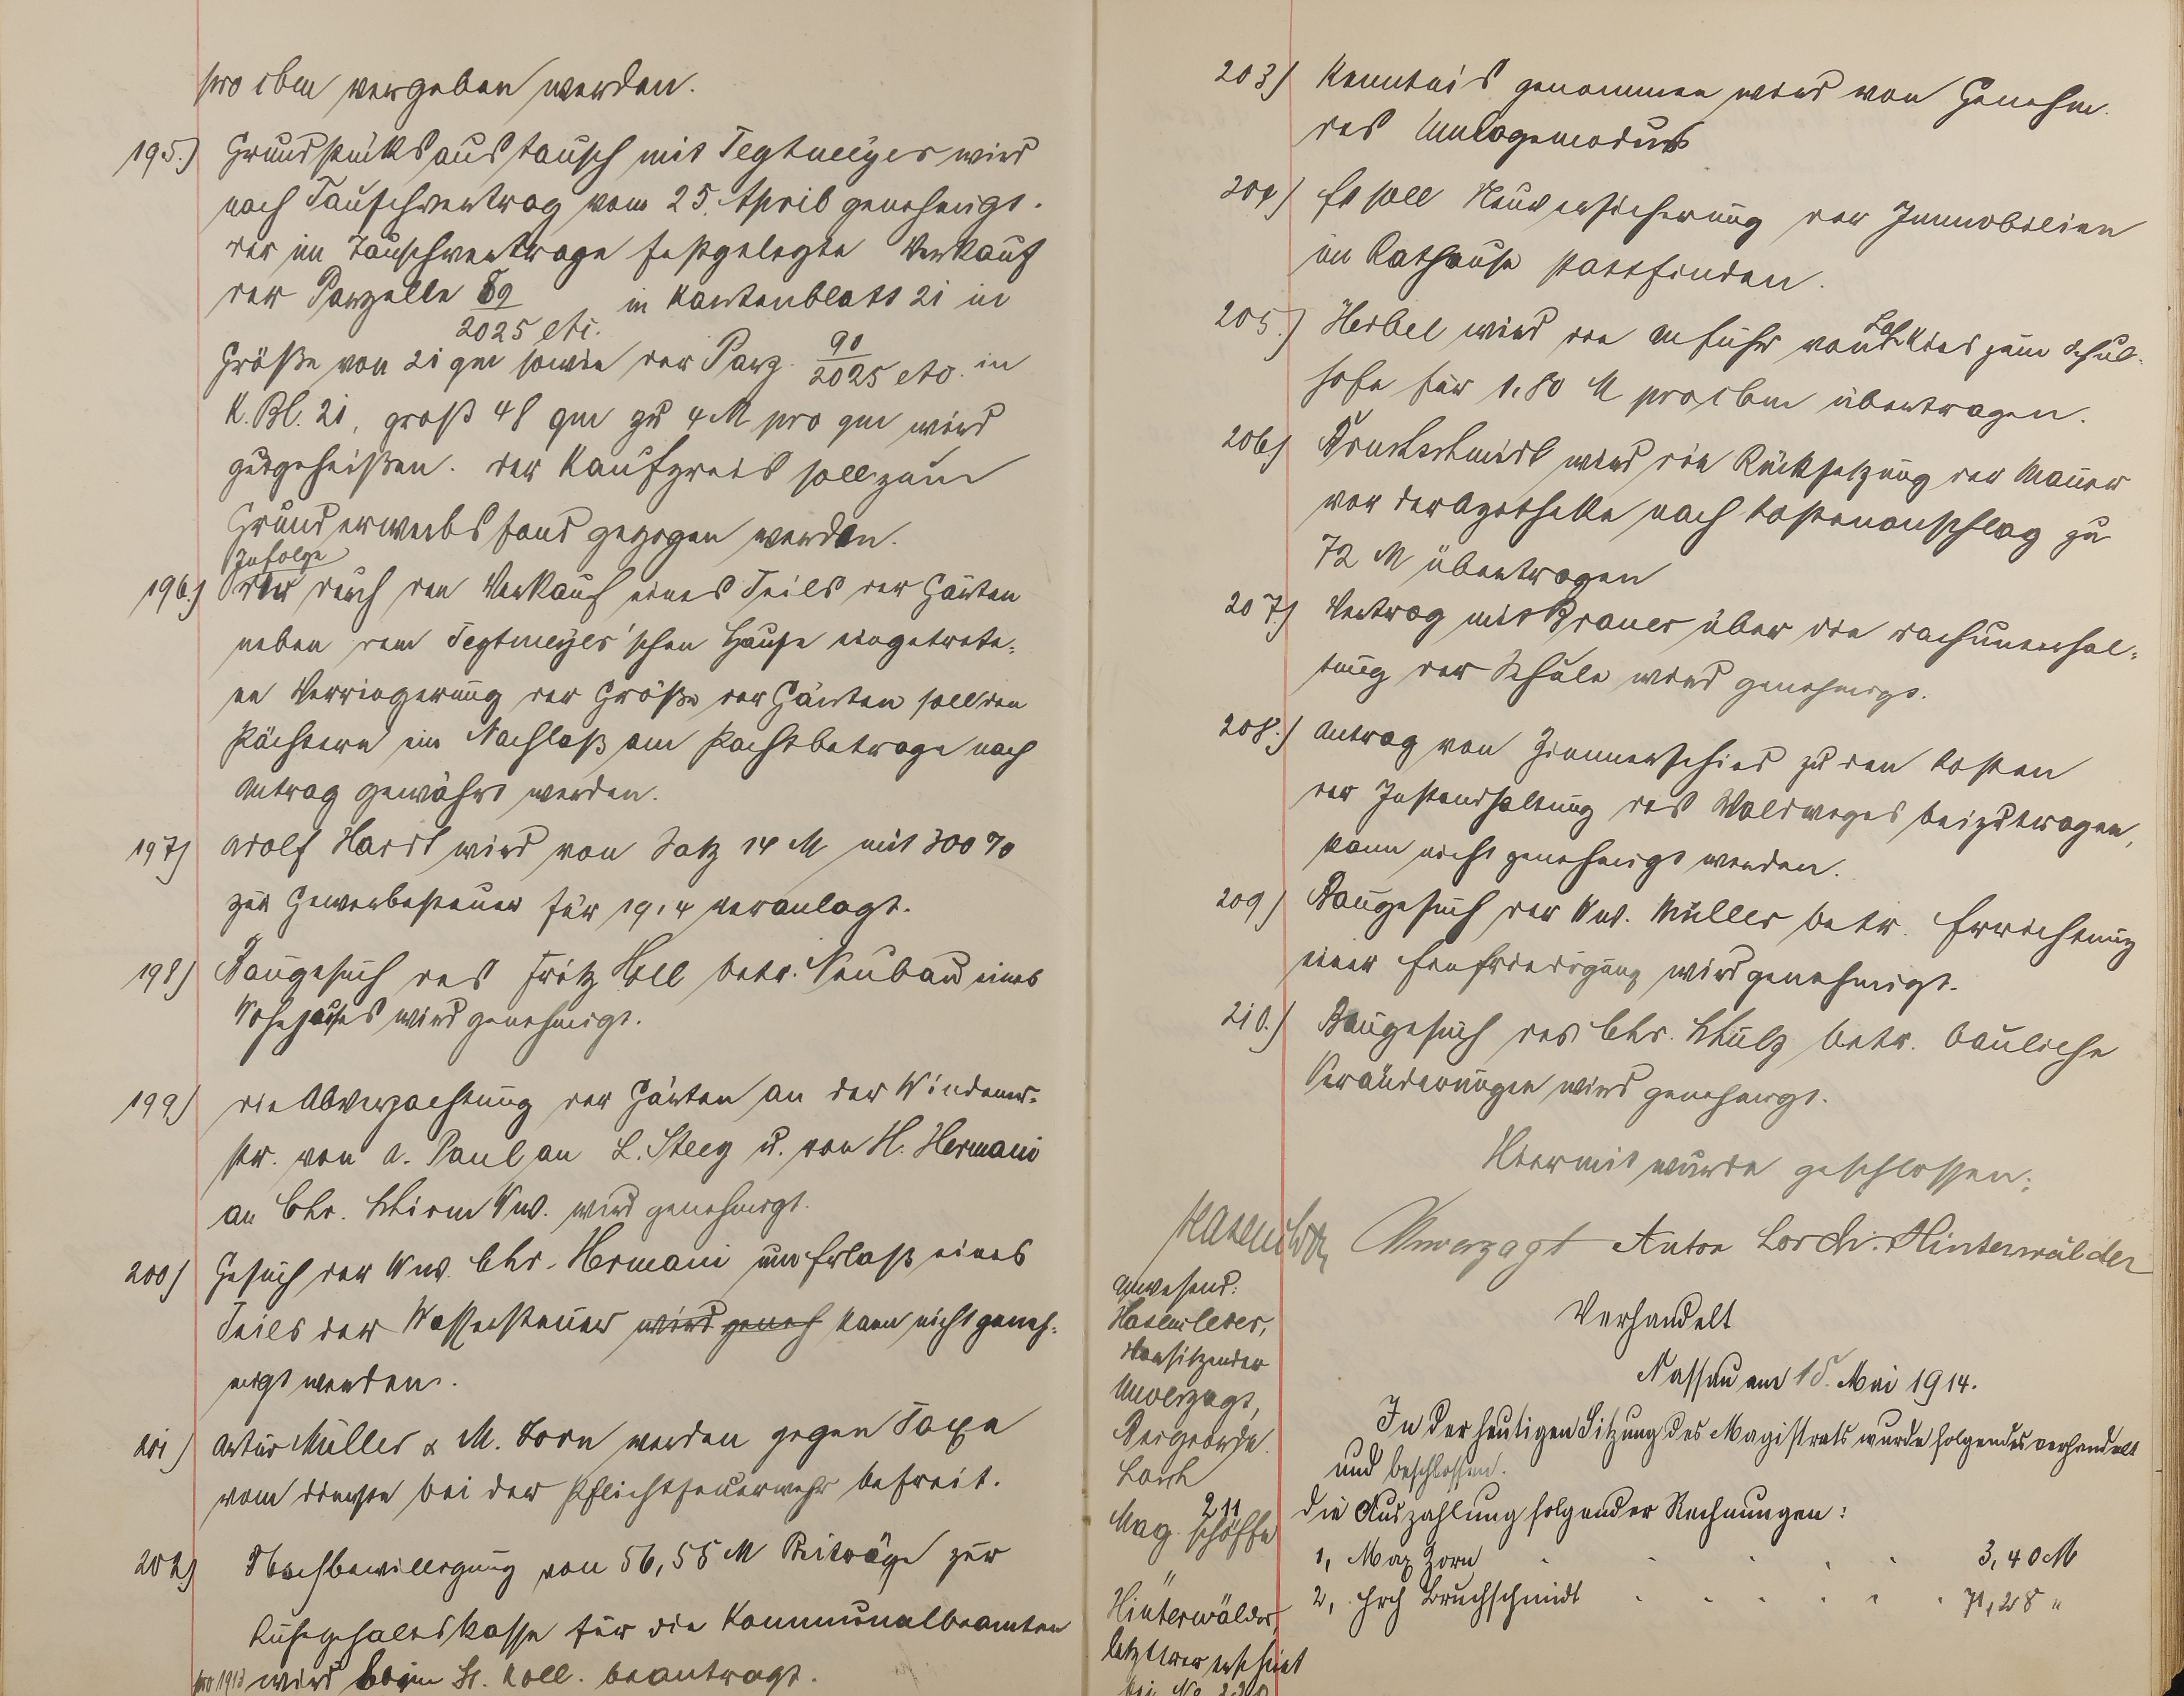 pro cbm vergeben werden.
195.) Grundstücksaustausch mit Tegtmeyer wird
nach Tauschvertrag vom 25. April genehmigt.
der im Tauschvertrage festgelegte Verkauf
der Parzelle 89/2025 etc. in Kartenblatt 21 in
Größe von 21 qm sowie der Parz. 90/2025 etc. in
K. Bl. 21, groß 48 qm zu 4 M pro qm wird
gutgeheißen. der Kaufpreis soll zum
Grunderwerbsfond gezogen werden.
Infolge
196.) der durch den Verkauf eines Teils der Gärten
neben dem Tegtmeyer'schen Hause eingetrete-
ne Verringerung der Größe der Gärten soll den
Pächtern ein Nachlaß am Pachtbetrage nach
Antrag gewährt werden.
197) Adolf Hardt wird von Satz 14 M mit 300 %
zur Gewerbesteuer für 1914 veranlagt.
198) Baugesuch des Fritz Holl betr. Neubau eines
Wohnhauses wird genehmigt.
199) die Abverpachtung der Gärten an der Windener-
str. von A. Paul an L. Steeg u. von H. Hermani
an Chr. Schirm Ww. wird genehmigt.
200) Gesuch der Ww. Chr. Hermani um Erlaß eines
Teils der Wassersteuer wird geneh kann nicht geneh-
migt werden.
201) Artur Müller & M. Zorn werden gegen Taxe
vom dienste bei der Pflichtfeuerwehr befreit.
202) Nachbewilligung von 56,55 M Beiträge zur
Ruhegehaltskasse für die Kommunalbeamten
pro 1913 wird beim St. Koll. beantragt.
203) Kenntnis genommen wird von Genehm.
des Umlagemodus
204) Es soll Neuversicherung der Immobilien
im Rathause stattfinden.
205.) Herbel wird die Anfuhr von Lahnkies zum Schul-
hofe für 1,80 M pro cbm übertragen.
206) Bruchschmidt wird die Rücksetzung der Mauer
vor der Apotheke nach Kostenanschlag zu
72 M übertragen
207.) Vertrag mit Brauer über die dachunterhal-
tung der Schule wird genehmigt.
208.) Antrag von Zimmerschied zu den Kosten
der Instandhaltung des Waldweges beizutragen,
kann nicht genehmigt werden.
209) Baugesuch der Ww. Müller betr. Errichtung
einer Einfriedigung wird genehmigt.
210.) Baugesuch des Chr. Schulz betr. bauliche
Veränderungen wird genehmigt.
Hiermit wurde geschlossen.
Hasenclever Unverzagt Anton Lorch. Hinterwälder
Anwesend:
Hasenclever,
Vorsitzender
Unverzagt,
Beigeordn.
Lorch
Mag. schöffe
Hinterwälder,
letzterer erscheint
bei No 220
Verhandelt
Nassau am 15. Mai 1914.
In der heutigen Sitzung des Magistrats wurde folgendes verhandelt
und beschlossen.
211 die Auszahlung folgender Rechnungen:
1, Max Zorn 3,40 M
2, Frch Bruchschmidt 71,28 "